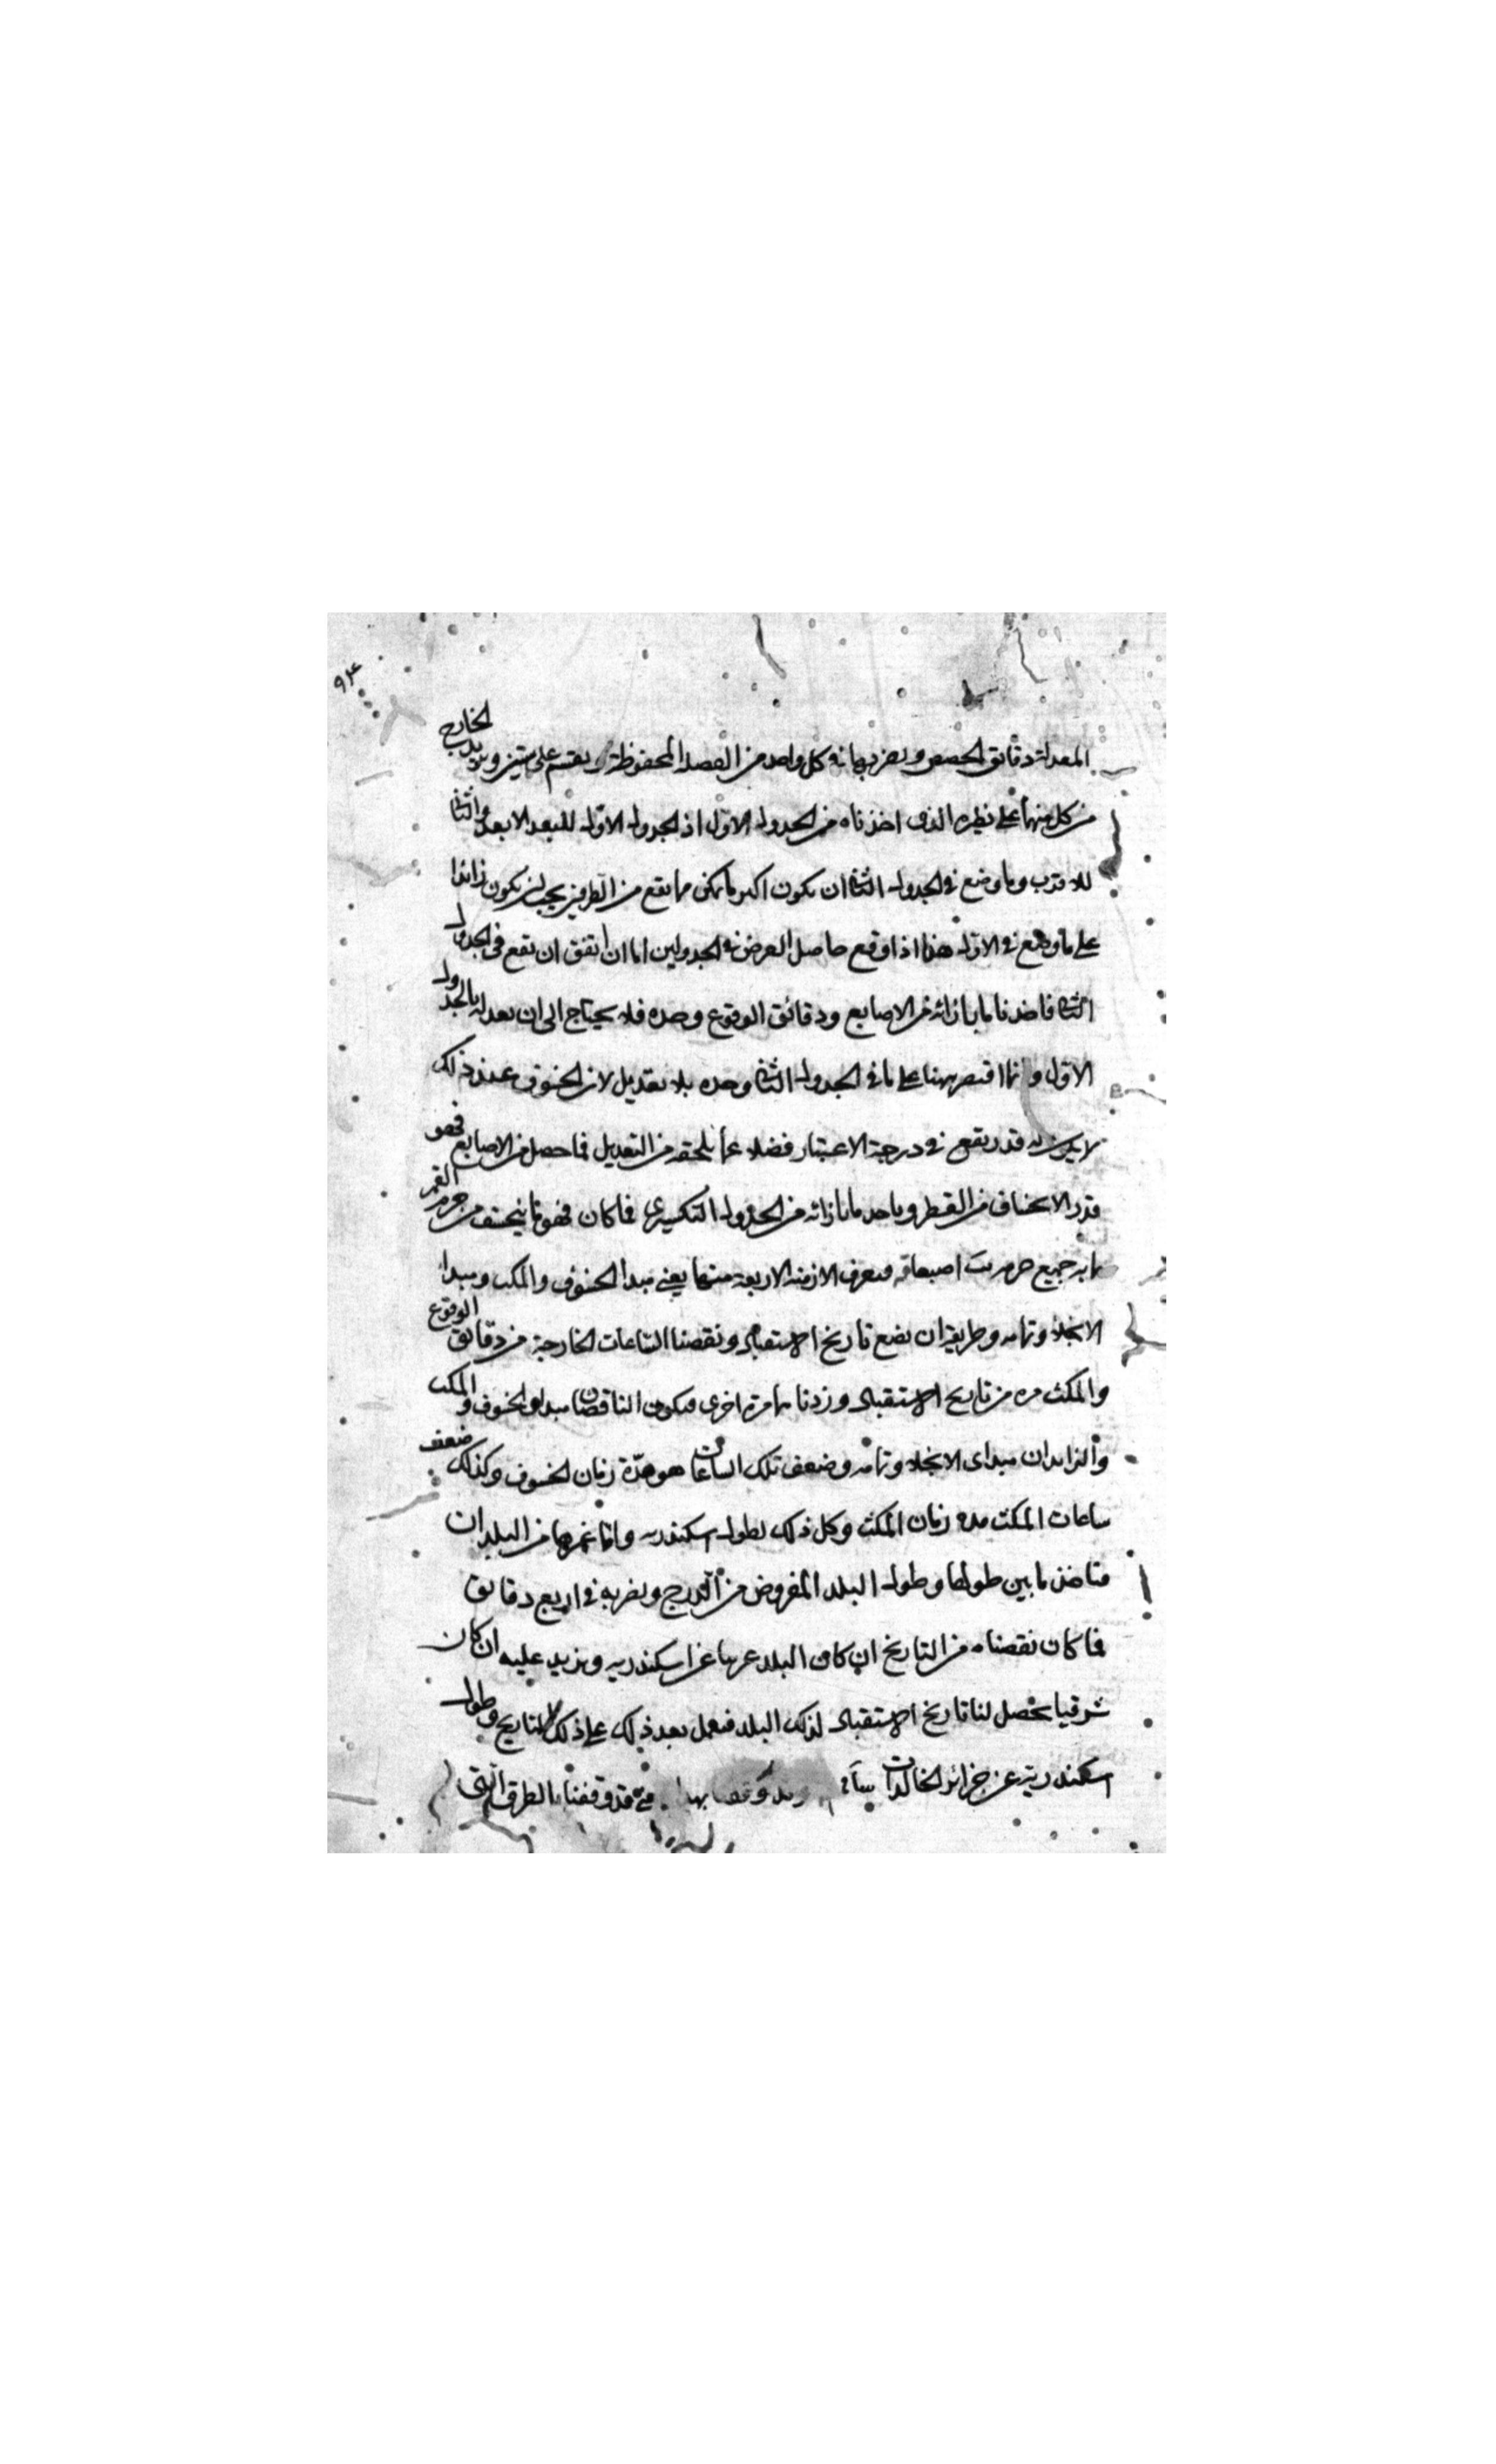 ٩٤
المعدلة دقائق الحصص ونضربها في كل واحد من الفضلة المحفوظة ونقسم على ستين ونزيد الخارج
من كل منهما على نظيره الذي اخذناه من الجدول الاول اذ الجدول الاول للبعد الابعد والثاني
للاقرب وما وضع في الجدول الثاني ان يكون اكبر ما يمكن مما يقع من الطرفين يجب ان يكون زائدا
على ما وضع في الاول هذا اذا وقع حاصل العرض في الجدولين اما ان اتفق ان يقع في الجدول
الثاني فاخذنا ما بازائه من الاصابع ودقائق الوقوع وحده فلا يحتاج الى ان نعدله بالجدول
الاول وانما اقتصر ههنا على ما في الجدول الثاني وحده بلا تعديل لان الخسوف عند ذلك
لا يكون له قدر يقع في درجة الاعتبار فضلا عما يلحقه من التعديل فما حصل من الاصابع فهو
قدر الانخساف من القطر وناخذ ما بازائه من الجدول التكسيري فما كان فهو ما ينخسف من جرم القمر
ما به جميع جرمه اصبعا ونعرف الازمنة الاربعة منهما يعني مبدا الخسوف والمكث ومبدا
الانجلاء وتمامه وطريقه ان نضع تاريخ الاستقبال ونقصنا الساعات الخارجة من دقائق الوقوع
والمكث مرة من تاريخ الاستقبال وزدناها مرة اخرى فيكون الناقصان مبداى الخسوف والمكث
والزايدان مبداى الانجلاء وتمامه وضعف تلك الساعات هو مدة زمان الخسوف وكذلك ضعف
ساعات المكث مدة زمان المكث وكل ذلك لطول اسكندريه واما غيرها من البلدان
فناخذ ما بين طولها وطول البلد المفروض من الدرج ونضربه في اربع دقائق
فما كان نقصناه من التاريخ ان كان البلد غربيا عن اسكندريه ونزيد عليه ان كان
شرقيا يحصل لنا تاريخ الاستقبال لذلك البلد فنعمل بعد ذلك على ذلك التاريخ وطول
اسكندرية عن جزائر الخالدات قد وقفنا الطرق التي